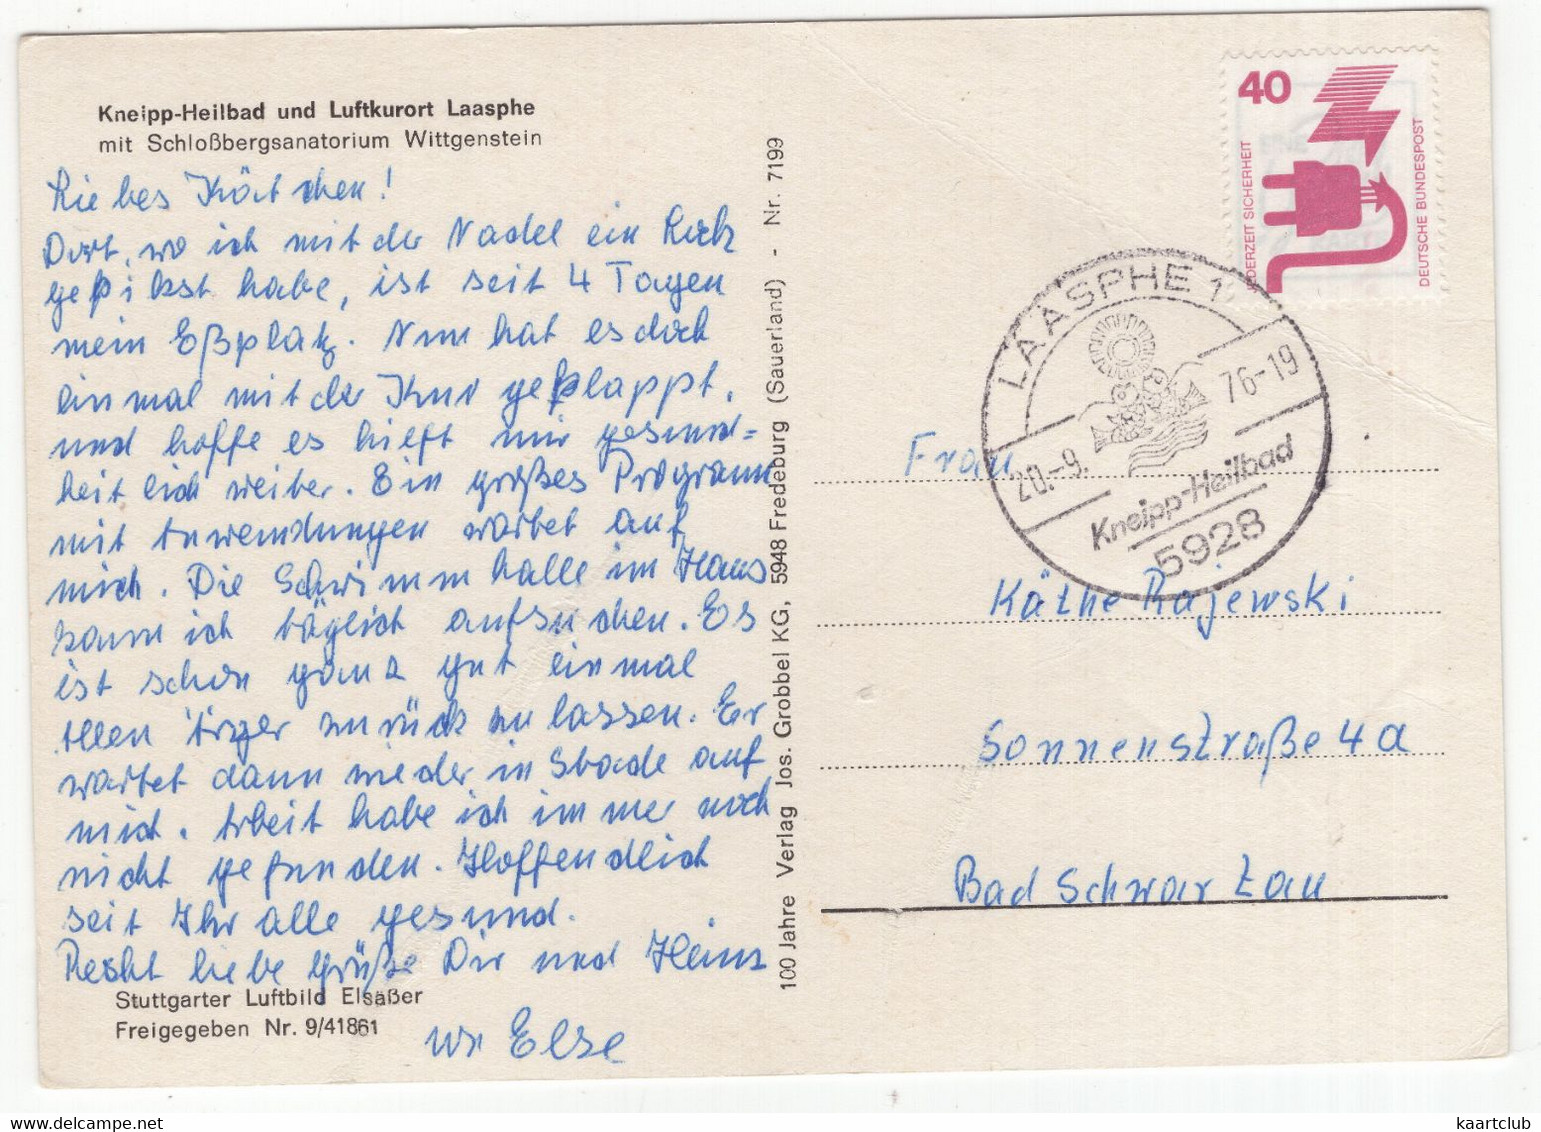 Kneipp-Heilbad und Luftkurort Laasphe
mit Schloßbergsanatorium Wittgenstein
Liebes Kätchen!
Dort, wo ich mit der Nadel ein Loch
gepikst habe, ist seit 4 Tagen
mein Eßplatz. Nun hat es doch
einmal mit der Kur geklappt,
und hoffe es hilft mir gesund=
heitlich weiter. Ein großes Programm
mit Anwendungen wartet auf
mich. Die Schwimmhalle im Haus
kann ich täglich aufsuchen. Es
ist schon ganz gut einmal
allen Ärger zurück zu lassen. Er
wartet dann wieder in Stade auf
mich. Arbeit habe ich immer noch
nicht gefunden. Hoffendlich
seit Ihr alle gesund.
Recht liebe Grüße Dir und Heinz
Else
Stuttgarter Luftbild Elsäßer
Freigegeben Nr. 9/41861
100 Jahre Verlag Jos. Grobbel KG, 5948 Fredeburg (Sauerland) - Nr. 7199
40
JEDERZEIT SICHERHEIT
DEUTSCHE BUNDESPOST
LAASPHE 1
20.-9. 76-19
Kneipp-Heilbad
5928
Frau
Käthe Rajewski
Sonnenstraße 4a
Bad Schwartau
kaartclub
www.delcampe.net